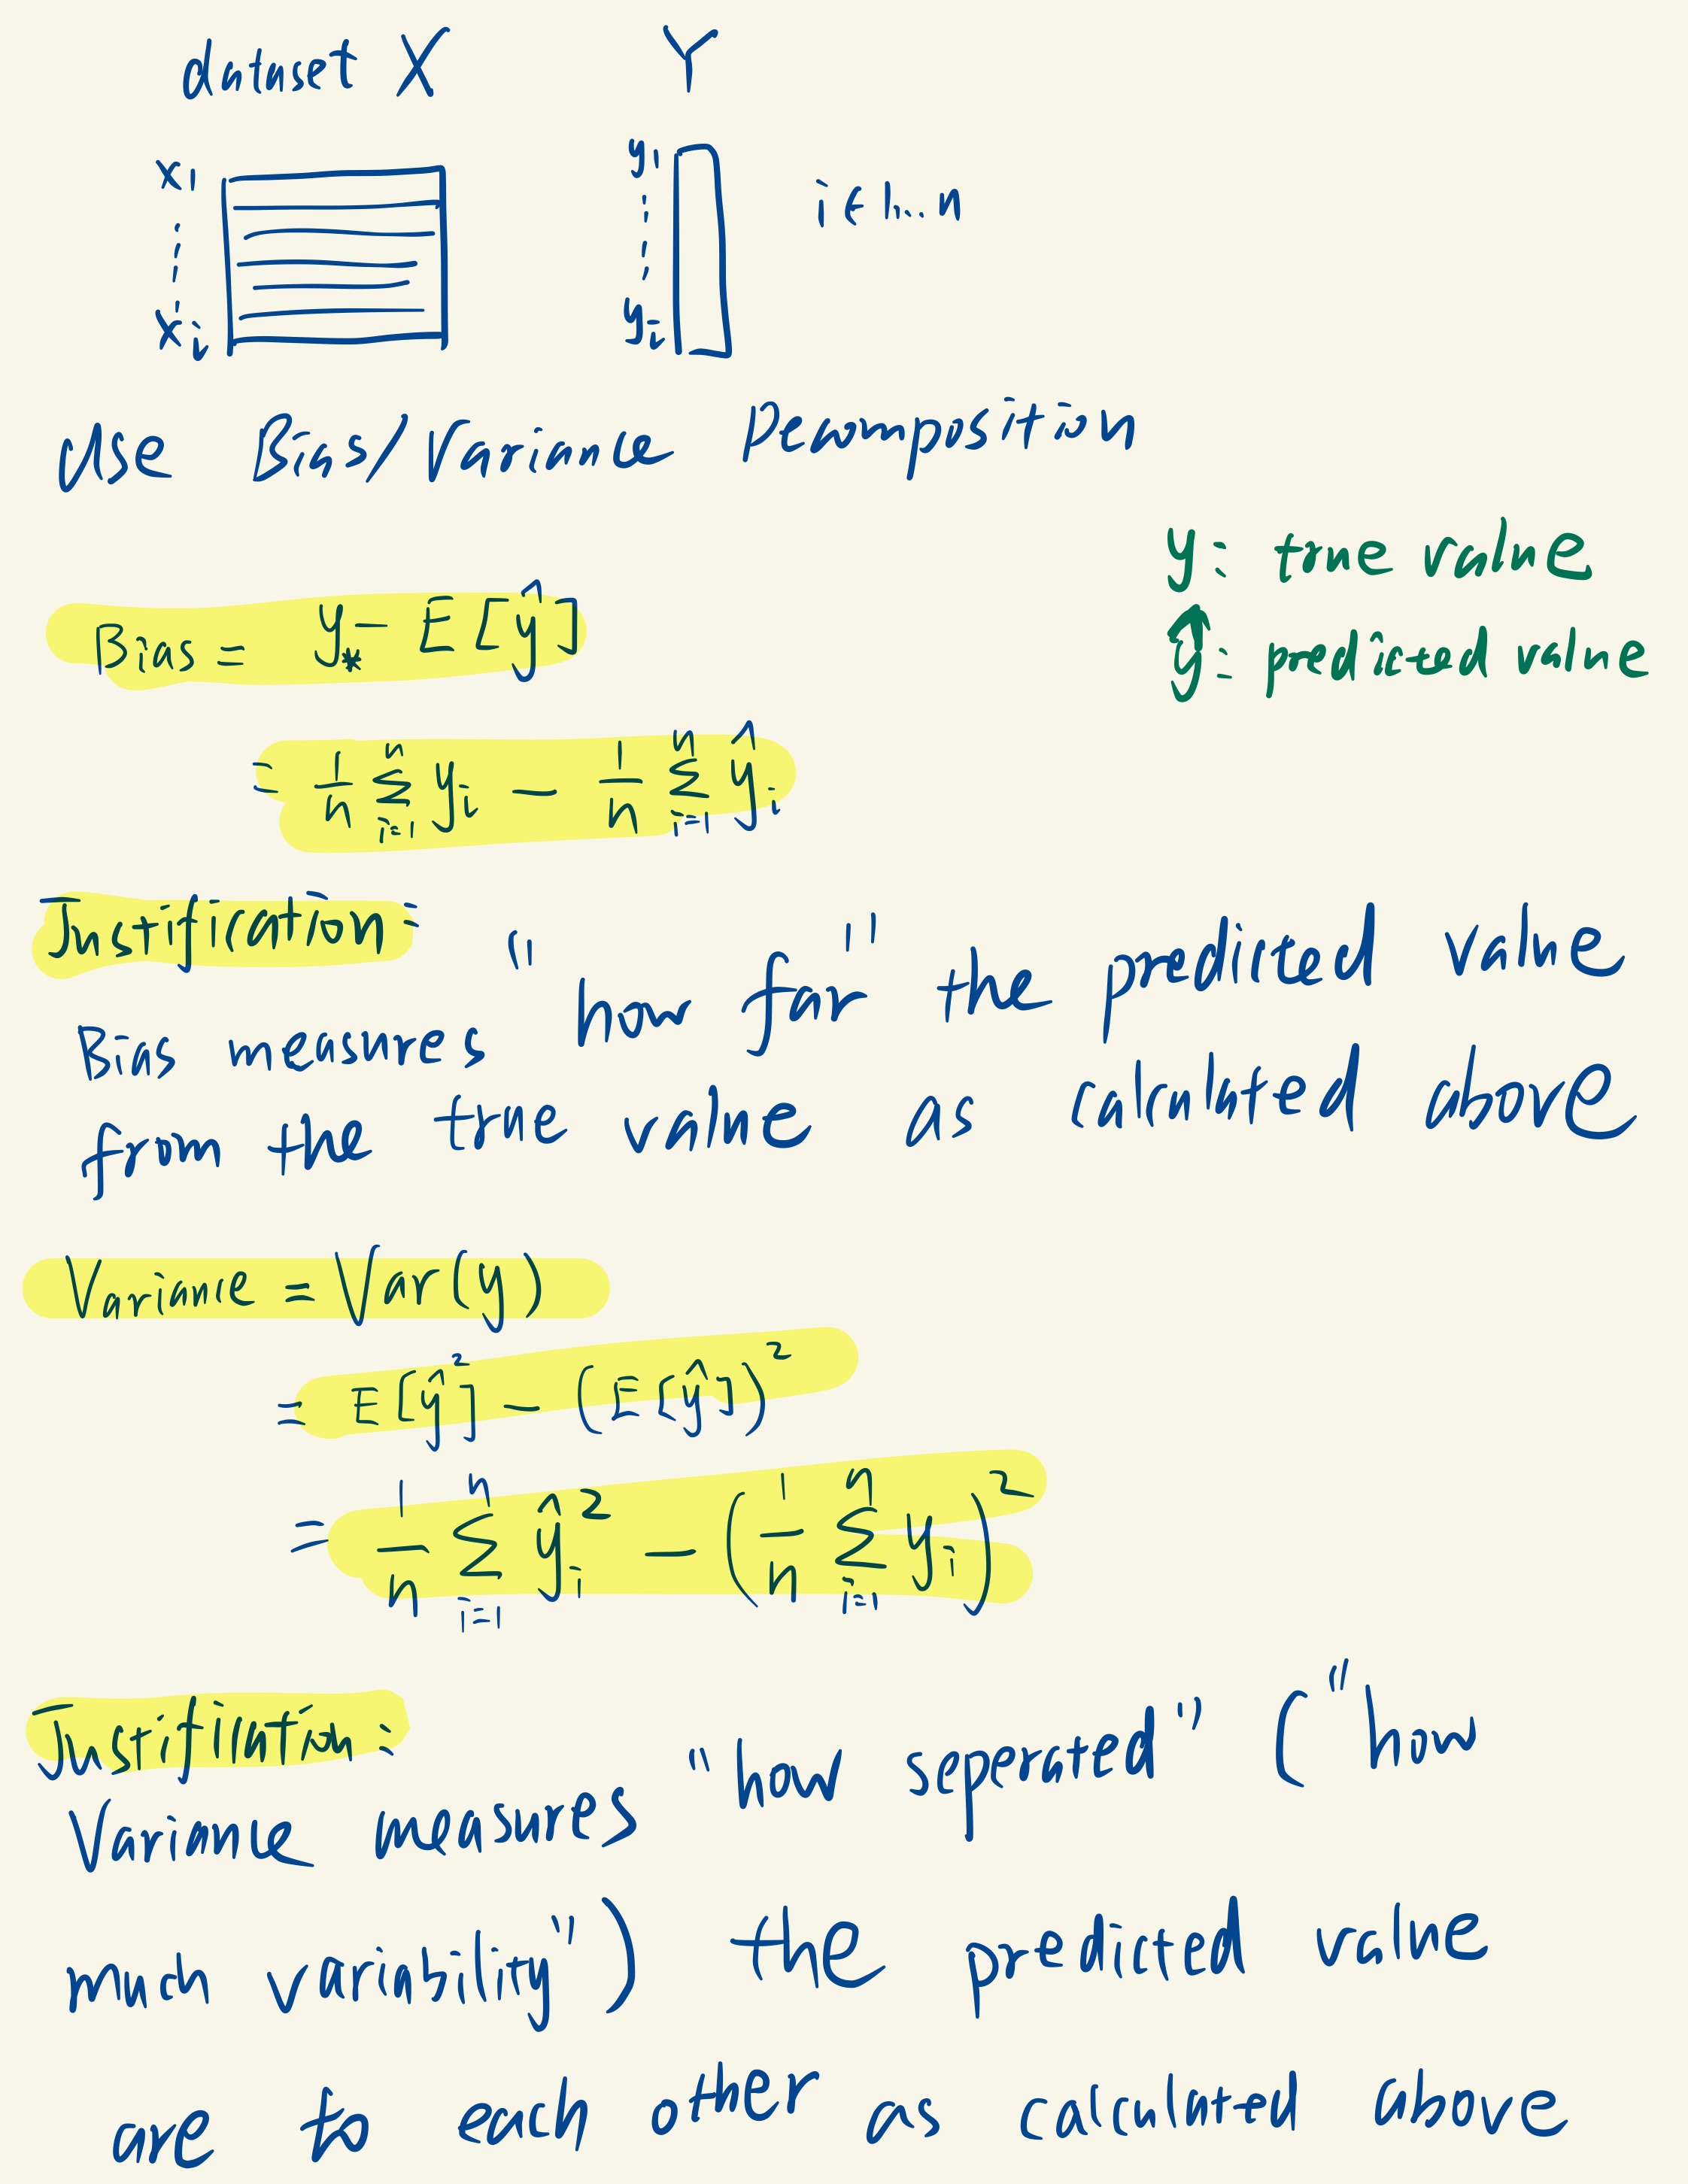 dataset X Y
x1 y1
i ∈ 1...n
xi yi
Use Bias/Variance Decomposition
y: true value
ŷ: predicted value
Bias = y* - E[ŷ]
= 1/n Σ_{i=1}^{n} yi - 1/n Σ_{i=1}^{n} ŷi
Justification:
Bias measures "how far" the predicted value
from the true value as calculated above
Variance = Var(y)
= E[ŷ²] - (E[ŷ])²
= 1/n Σ_{i=1}^{n} ŷi² - (1/n Σ_{i=1}^{n} yi)²
Justification:
Variance measures "how seperated" ("how
much variability") the predicted value
are to each other as calculated above